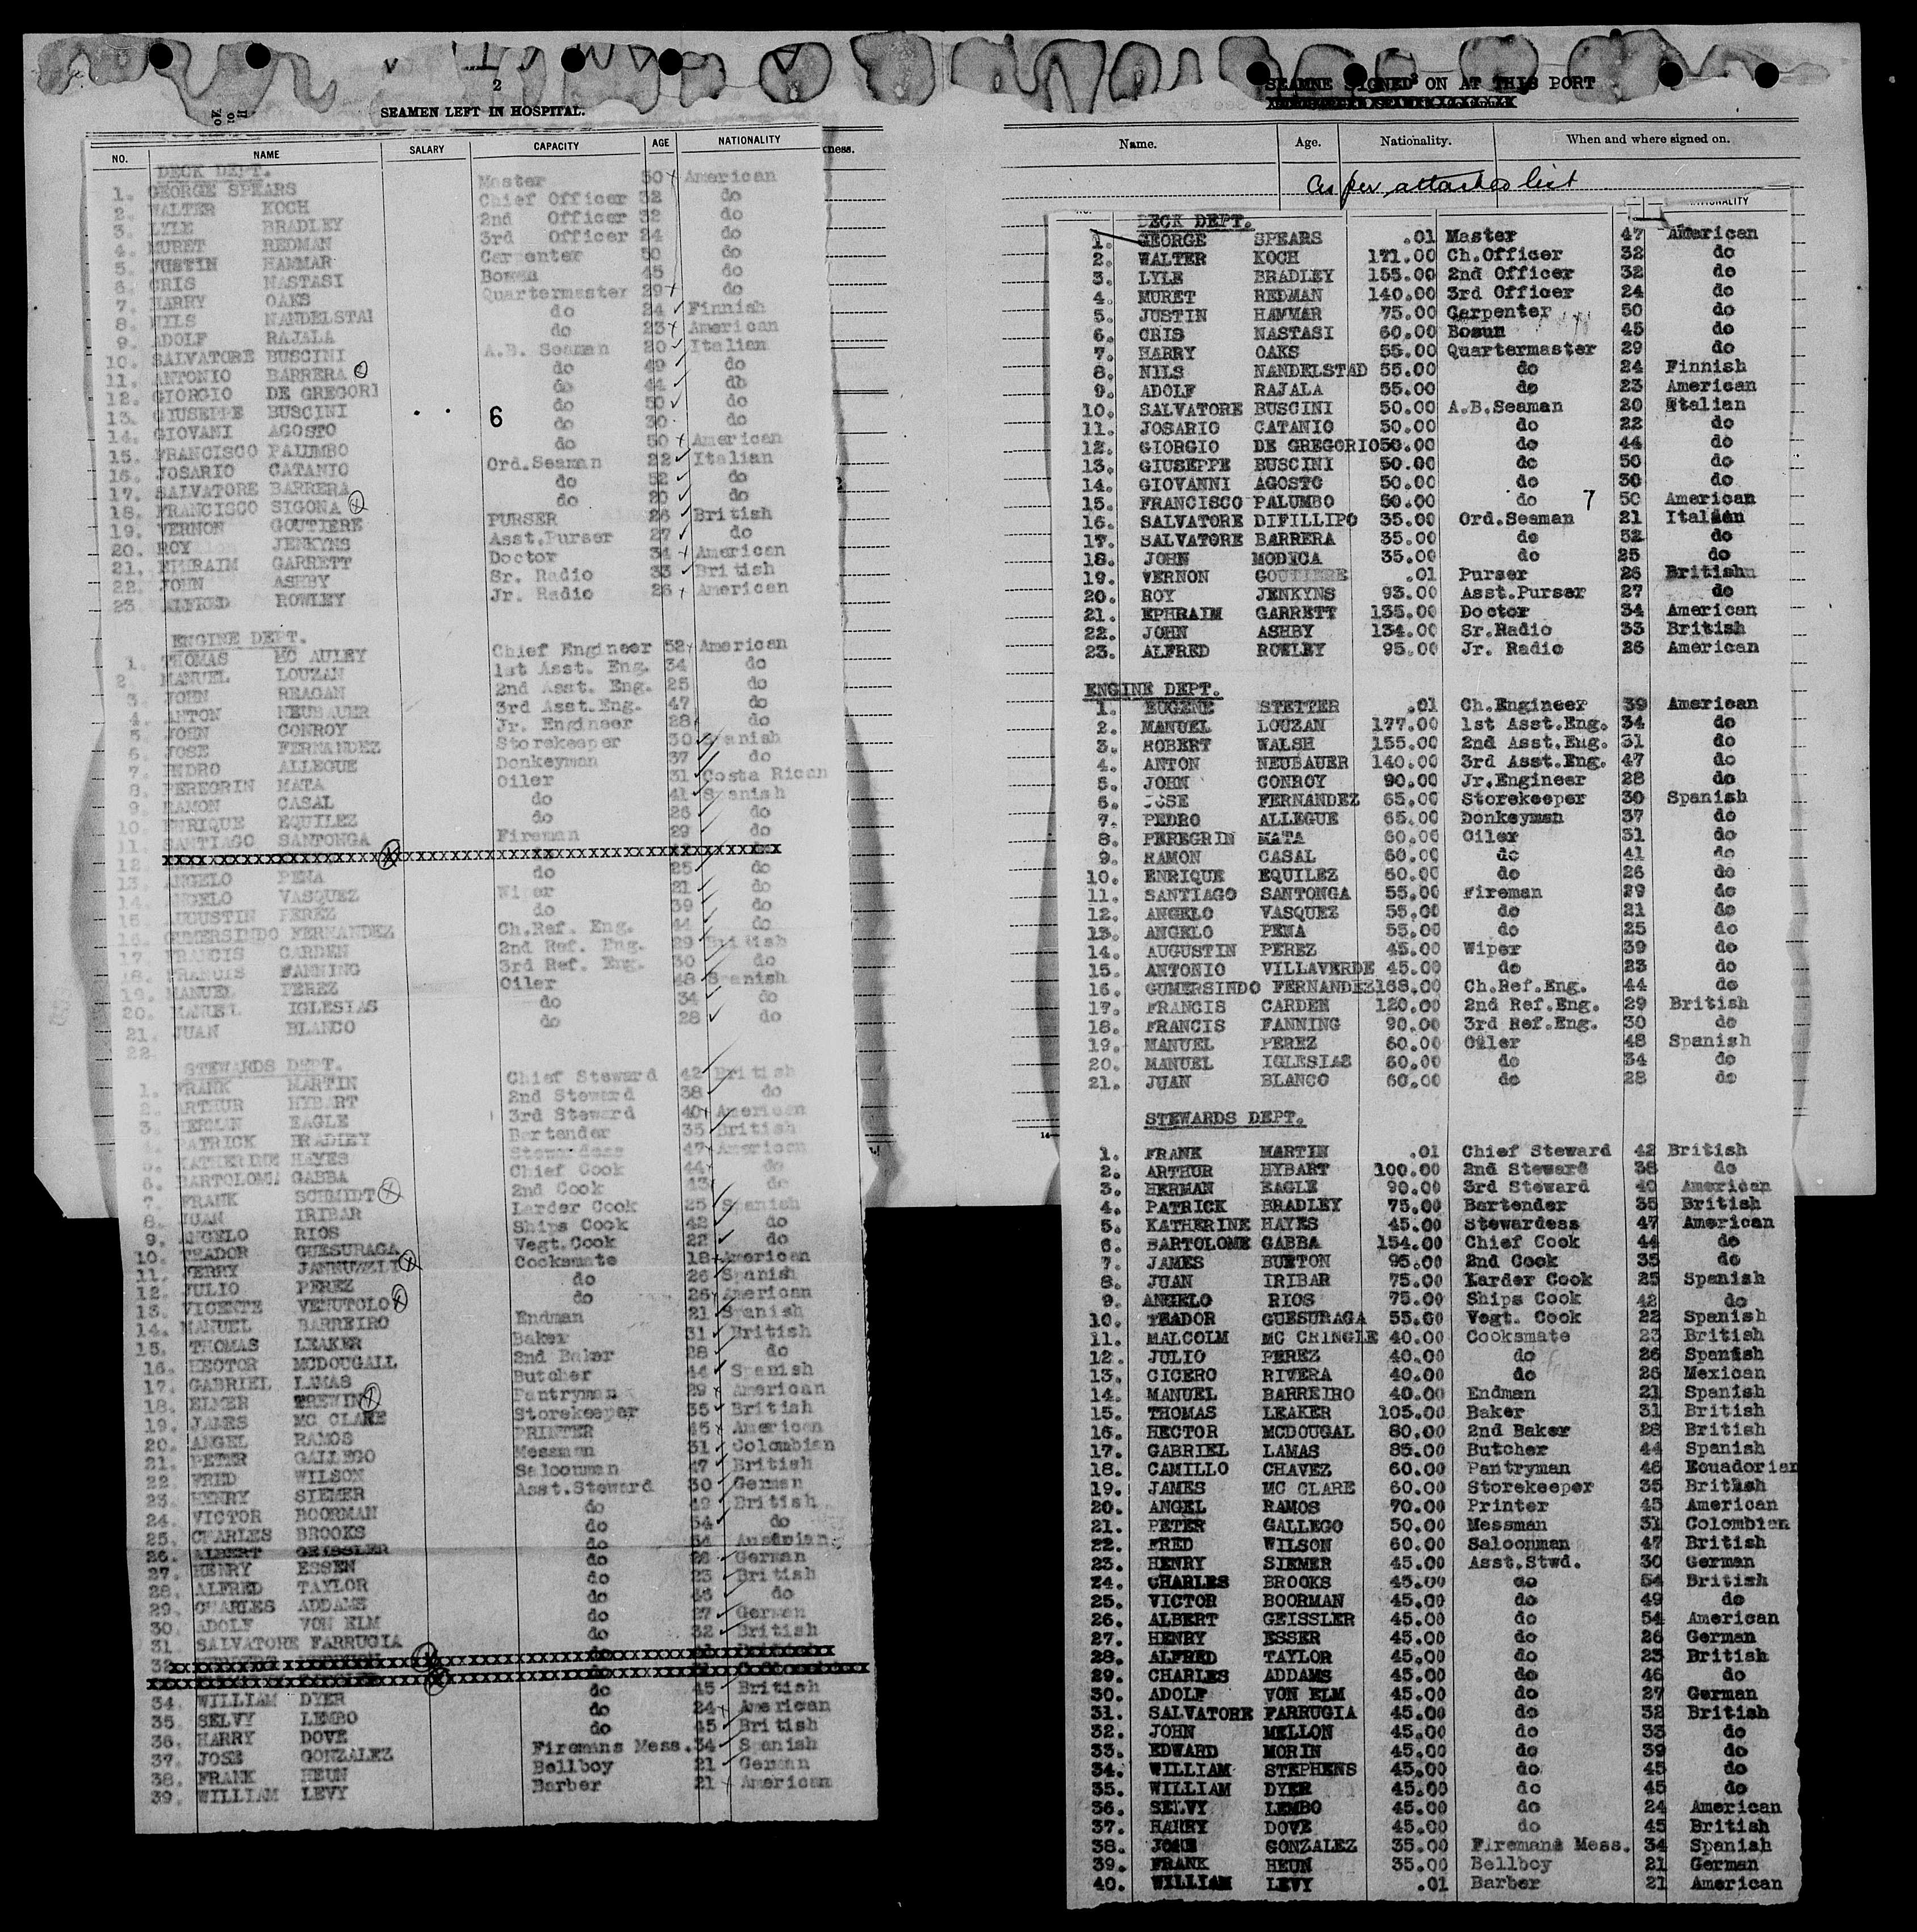 2
SEAMEN LEFT IN HOSPITAL.
NO. NAME SALARY CAPACITY AGE NATIONALITY
DECK DEPT.
1. GEORGE SPEARS Master 50 American
2. WALTER KOCH Chief Officer 32 do
3. LYLE BRADLEY 2nd Officer 32 do
4. MURET REDMAN 3rd Officer 24 do
5. JUSTIN HAMMAR Carpenter 50 do
6. CRIS NASTASI Bosun 45 do
7. HARRY OAKS Quartermaster 29 do
8. NILS NANDELSTAD do 24 Finnish
9. ADOLF RAJALA do 23 American
10. SALVATORE BUSCINI A.B. Seaman 20 Italian
11. ANTONIO BARRERA do 49 do
12. GIORGIO DE GREGORI do 44 do
13. GIUSEPPE BUSCINI do 50 do
14. GIOVANI AGOSTO 6 do 30 do
15. FRANCISCO PALUMBO do 50 American
16. JOSARIO CATANIO Ord.Seaman 22 Italian
17. SALVATORE BARRERA do 52 do
18. FRANCISCO SIGONA do 20 do
19. VERNON GOUTIERE PURSER 26 British
20. ROY JENKYNS Asst.Purser 27 do
21. EPHRAIM GARRETT Doctor 34 American
22. JOHN ASHBY Sr. Radio 33 British
23. ALFRED ROWLEY Jr. Radio 26 American
ENGINE DEPT.
1. THOMAS MC AULEY Chief Engineer 52 American
2. MANUEL LOUZAN 1st Asst. Eng. 34 do
3. JOHN REAGAN 2nd Asst. Eng. 25 do
4. ANTON NEUBAUER 3rd Asst.Eng. 47 do
5. JOHN CONROY Jr. Engineer 28 do
6. JOSE FERNANDEZ Storekeeper 30 Spanish
7. PEDRO ALLEGUE Donkeyman 37 do
8. PEREGRIN MATA Oiler 31 Costa Rican
9. RAMON CASAL do 41 Spanish
10. ENRIQUE EQUILEZ do 26 do
11. SANTIAGO SANTONGA Fireman 29 do
12.
13. ANGELO PENA do 25 do
14. ANGELO VASQUEZ Wiper 21 do
15. AUGUSTIN PEREZ do 39 do
16. GUMERSINDO FERNANDEZ Ch.Ref. Eng. 44 do
17. FRANCIS CARDEN 2nd Ref. Eng. 29 British
18. FRANCIS FANNING 3rd Ref. Eng. 30 do
19. MANUEL PEREZ Oiler 48 Spanish
20. MANUEL IGLESIAS do 34 do
21. JUAN BLANCO do 28 do
22.
STEWARDS DEPT.
1. FRANK MARTIN Chief Steward 42 British
2. ARTHUR HYBART 2nd Steward 38 do
3. HERMAN EAGLE 3rd Steward 40 American
4. PATRICK BRADLEY Bartender 35 British
5. KATHERINE HAYES Stewardess 47 American
6. BARTOLOMA GABBA Chief Cook 44 do
7. FRANK SCHMIDT 2nd Cook 43 do
8. JUAN IRIBAR Larder Cook 25 Spanish
9. ANGELO RIOS Ships Cook 42 do
10. TEADOR GUESURAGA Vegt.Cook 22 do
11. JERRY JANNUZZLI Cooksmate 18 American
12. JULIO PEREZ do 26 Spanish
13. VICENTE VENUTOLO do 26 American
14. MANUEL BARREIRO Endman 21 Spanish
15. THOMAS LEAKER Baker 31 British
16. HECTOR MCDOUGALL 2nd Baker 28 do
17. GABRIEL LAMAS Butcher 44 Spanish
18. ELMER TREWIN Pantryman 29 American
19. JAMES MC CLARE Storekeeper 35 British
20. ANGEL RAMOS PRINTER 45 American
21. PETER GALLEGO Messman 31 Colombian
22. FRED WILSON Saloonman 47 British
23. HENRY SIEMER Asst.Steward 30 German
24. VICTOR BOORMAN do 49 British
25. CHARLES BROOKS do 54 do
26. ALBERT GEISSLER do 54 Austrian
27. HENRY ESSEN do 26 German
28. ALFRED TAYLOR do 23 British
29. CHARLES ADDAMS do 46 do
30. ADOLF VON ELM do 27 German
31. SALVATORE FARRUGIA do 32 British
32.
34. WILLIAM DYER do 45 British
35. SELVY LEMBO do 24 American
36. HARRY DOVE do 45 British
37. JOSE GONZALEZ Firemans Mess. 34 Spanish
38. FRANK HEUN Bellboy 21 German
39. WILLIAM LEVY Barber 21 American
SEAMNE SIGNED ON AT THIS PORT
Name. Age. Nationality. When and where signed on.
as per attached list
DECK DEPT.
1. GEORGE SPEARS .01 Master 47 American
2. WALTER KOCH 171.00 Ch.Officer 32 do
3. LYLE BRADLEY 155.00 2nd Officer 32 do
4. MURET REDMAN 140.00 3rd Officer 24 do
5. JUSTIN HAMMAR 75.00 Carpenter 50 do
6. CRIS NASTASI 60.00 Bosun 45 do
7. HARRY OAKS 55.00 Quartermaster 29 do
8. NILS NANDELSTAD 55.00 do 24 Finnish
9. ADOLF RAJALA 55.00 do 23 American
10. SALVATORE BUSCINI 50.00 A.B.Seaman 20 Italian
11. JOSARIO CATANIO 50.00 do 22 do
12. GIORGIO DE GREGORIO 50.00 do 44 do
13. GIUSEPPE BUSCINI 50.00 do 50 do
14. GIOVANNI AGOSTO 50.00 do 30 do
15. FRANCISCO PALUMBO 50.00 do 7 50 American
16. SALVATORE DIFILLIPO 35.00 Ord.Seaman 21 Italian
17. SALVATORE BARRERA 35.00 do 52 do
18. JOHN MODICA 35.00 do 25 do
19. VERNON GOUTIERE .01 Purser 26 British
20. ROY JENKYNS 93.00 Asst.Purser 27 do
21. EPHRAIM GARRETT 135.00 Doctor 34 American
22. JOHN ASHBY 134.00 Sr.Radio 33 British
23. ALFRED ROWLEY 95.00 Jr. Radio 26 American
ENGINE DEPT.
1. EUGENE STETTER .01 Ch.Engineer 39 American
2. MANUEL LOUZAN 177.00 1st Asst.Eng. 34 do
3. ROBERT WALSH 155.00 2nd Asst.Eng. 31 do
4. ANTON NEUBAUER 140.00 3rd Asst.Eng. 47 do
5. JOHN CONROY 90.00 Jr.Engineer 28 do
6. JOSE FERNANDEZ 65.00 Storekeeper 30 Spanish
7. PEDRO ALLEGUE 65.00 Donkeyman 37 do
8. PEREGRIN MATA 60.00 Oiler 31 do
9. RAMON CASAL 60.00 do 41 do
10. ENRIQUE EQUILEZ 60.00 do 26 do
11. SANTIAGO SANTONGA 55.00 Fireman 29 do
12. ANGELO VASQUEZ 55.00 do 21 do
13. ANGELO PENA 55.00 do 25 do
14. AUGUSTIN PEREZ 45.00 Wiper 39 do
15. ANTONIO VILLAVERDE 45.00 do 23 do
16. GUMERSINDO FERNANDEZ 168.00 Ch.Ref.Eng. 44 do
17. FRANCIS CARDEN 120.00 2nd Ref.Eng. 29 British
18. FRANCIS FANNING 90.00 3rd Ref.Eng. 30 do
19. MANUEL PEREZ 60.00 Oiler 48 Spanish
20. MANUEL IGLESIAS 60.00 do 34 do
21. JUAN BLANCO 60.00 do 28 do
STEWARDS DEPT.
1. FRANK MARTIN .01 Chief Steward 42 British
2. ARTHUR HYBART 100.00 2nd Steward 38 do
3. HERMAN EAGLE 90.00 3rd Steward 40 American
4. PATRICK BRADLEY 75.00 Bartender 35 British
5. KATHERINE HAYES 45.00 Stewardess 47 American
6. BARTOLOME GABBA 154.00 Chief Cook 44 do
7. JAMES BURTON 95.00 2nd Cook 35 do
8. JUAN IRIBAR 75.00 Larder Cook 25 Spanish
9. ANGELO RIOS 75.00 Ships Cook 42 do
10. TEADOR GUESURAGA 55.00 Vegt. Cook 22 Spanish
11. MALCOLM MC CRINGLE 40.00 Cooksmate 23 British
12. JULIO PEREZ 40.00 do 26 Spanish
13. CICERO RIVERA 40.00 do 25 Mexican
14. MANUEL BARREIRO 40.00 Endman 21 Spanish
15. THOMAS LEAKER 105.00 Baker 31 British
16. HECTOR MCDOUGAL 80.00 2nd Baker 28 British
17. GABRIEL LAMAS 85.00 Butcher 44 Spanish
18. CAMILLO CHAVEZ 60.00 Pantryman 46 Ecuadorian
19. JAMES MC CLARE 60.00 Storekeeper 35 British
20. ANGEL RAMOS 70.00 Printer 45 American
21. PETER GALLEGO 50.00 Messman 31 Colombian
22. FRED WILSON 60.00 Saloonman 47 British
23. HENRY SIEMER 45.00 Asst.Stwd. 30 German
24. CHARLES BROOKS 45.00 do 54 British
25. VICTOR BOORMAN 45.00 do 49 do
26. ALBERT GEISSLER 45.00 do 54 American
27. HENRY ESSER 45.00 do 26 German
28. ALFRED TAYLOR 45.00 do 23 British
29. CHARLES ADDAMS 45.00 do 46 do
30. ADOLF VON ELM 45.00 do 27 German
31. SALVATORE FARRUGIA 45.00 do 32 British
32. JOHN MELLON 45.00 do 33 do
33. EDWARD MORIN 45.00 do 39 do
34. WILLIAM STEPHENS 45.00 do 45 do
35. WILLIAM DYER 45.00 do 45 do
36. SELVY LEMBO 45.00 do 24 American
37. HARRY DOVE 45.00 do 45 British
38. JOSE GONZALEZ 35.00 Firemans Mess. 34 Spanish
39. FRANK HEUN 35.00 Bellboy 21 German
40. WILLIAM LEVY .01 Barber 21 American